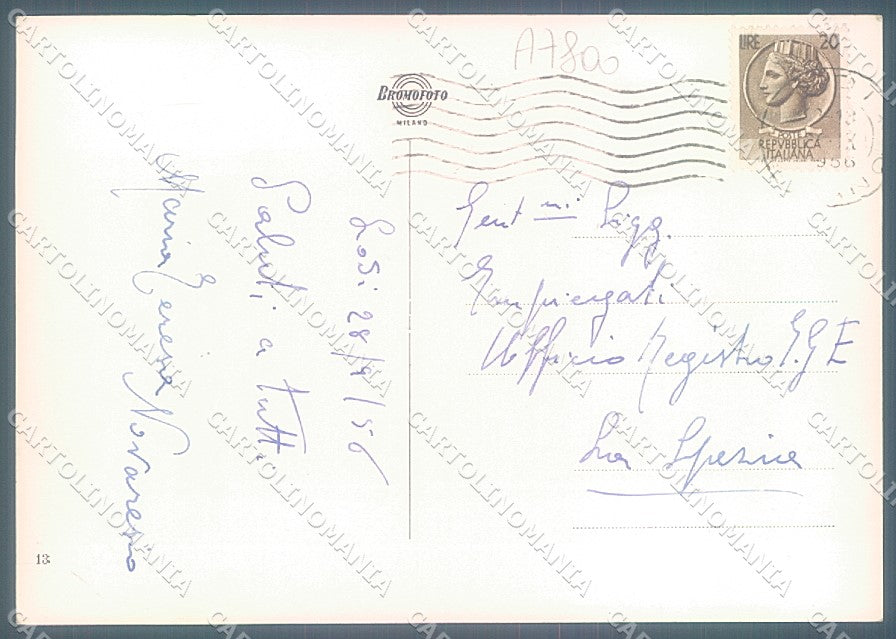 A7800
BROMOFOTO
MILANO
LIRE 20
POSTE
REPVBBLICA
ITALIANA
Lodi 28/9/56
Saluti a tutti
Maria Teresa Novarese
Gent mi Sigg.
Impiegati
Ufficio Registro I.G.E
La Spezia
13
CARTOLINOMANIA